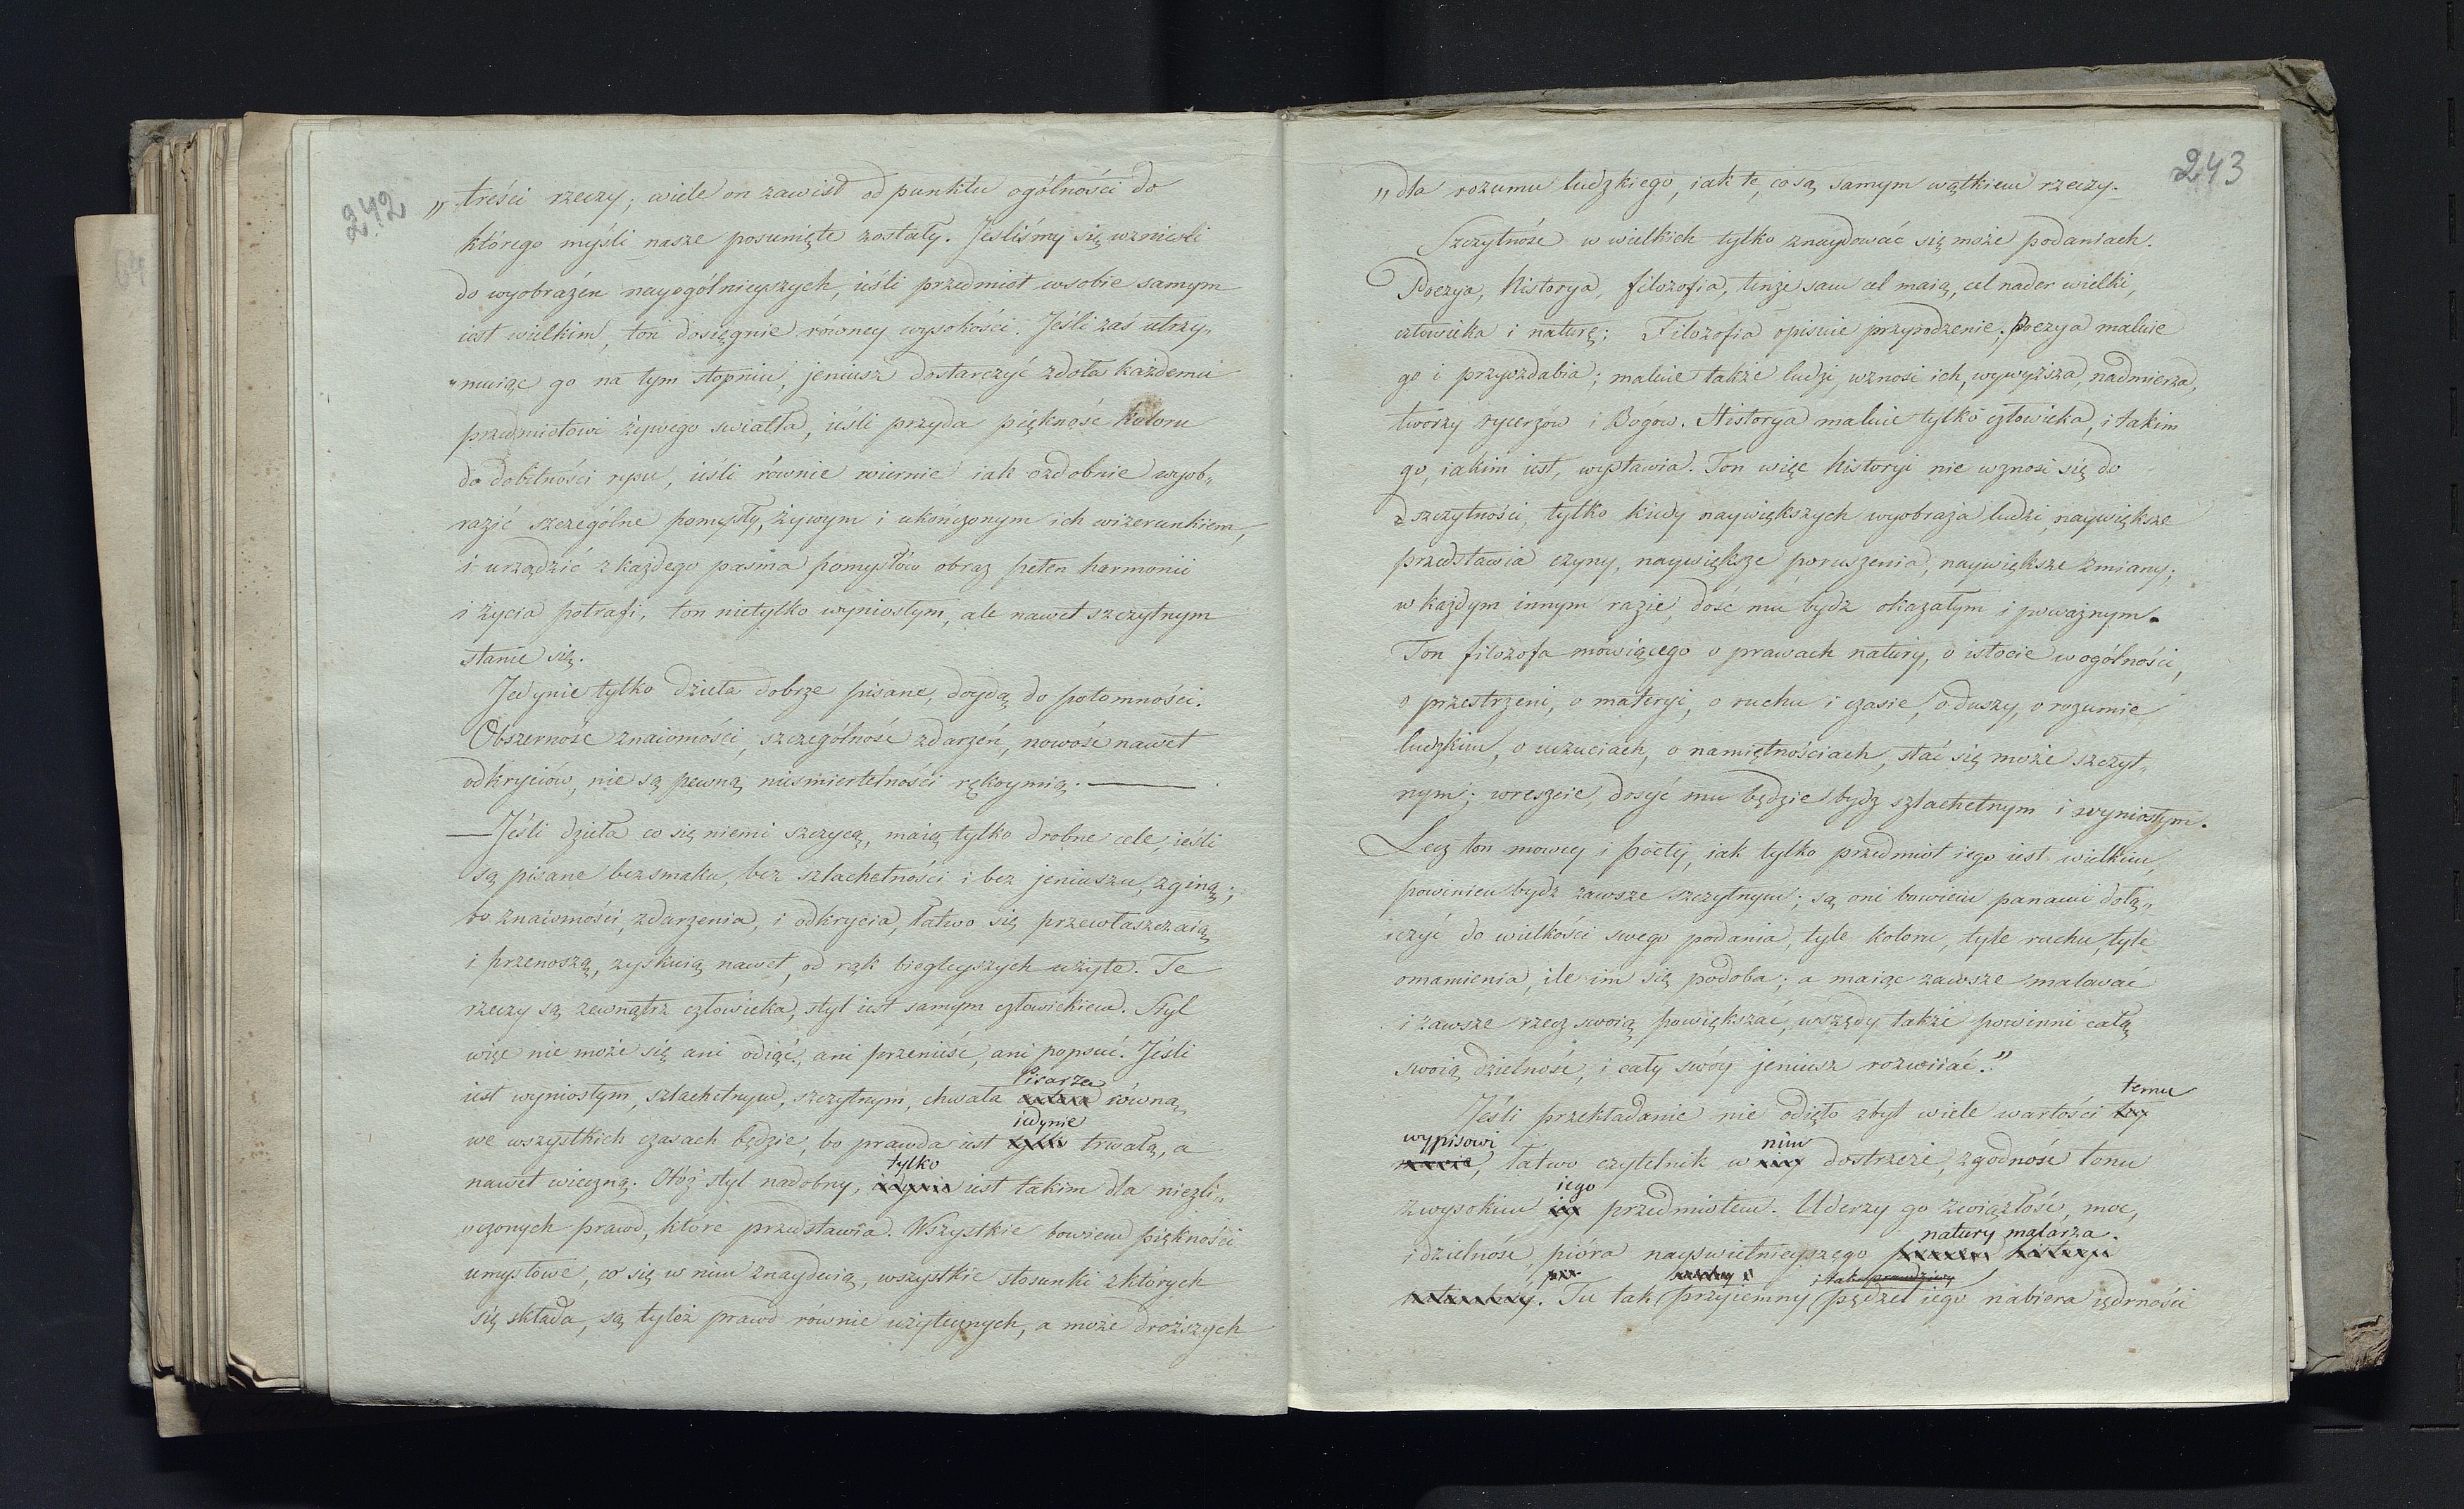 242
„ treści rzeczy; wiele on zawisł od punktu ogólności do
którego myśli nasze posunięte zostały. Jeśliśmy się wznieśli
do wyobrażeń nayogólnieyszych, ieśli przedmiot w sobie samym
iest wielkim, ton dosięgnie równey wysokości. Jeśli zaś utrzy„
„muiąc go na tym stopniu, jeniusz dostarczyć zdoła każdemu
przedmiotowi żywego swiatła, ieśli przyda piękność koloru
do dobitności rysu, ieśli równie wiernie iak ozdobnie wyob„
razić szczególne pomysły, żywym i ukończonym ich wizerunkiem,
i urządzić z każdego pasma pomysłów obraz pełen harmonii
i życia potrafi, ton nietylko wyniosłym, ale nawet szczytnym
stanie się.
Jedynie tylko dzieła dobrze pisane, doydą do potomności.
Obszerność znaiomości, szczególność zdarzeń, nowość nawet
odkryciów, nie są pewną nieśmiertelności rękoymią. ——
—Jeśli dzieła co się niemi szczycą, maią tylko drobne cele, ieśli
są pisane bez smaku, bez szlachetności i bez jeniuszu, zginą;
bo znaiomości, zdarzenia, i odkrycia, łatwo się przewłaszczaią
i przenoszą, zyskuią nawet, od rąk biegleyszych użyte. Te
rzeczy są zewnątrz człowieka, styl iest samym człowiekiem. Styl
więc nie może się ani odiąć, ani przenieść, ani popsuć. Jeśli
Pisarza
iest wyniosłym, szlachetnym, szczytnym, chwała równą
iedynie
we wszystkich czasach będzie, bo prawda iest tylko trwałą, a
tylko
nawet wieczną. Otóż styl nadobny, iedynie iest takim dla niezli„
„czonych prawd, które przedstawia. Wszystkie bowiem piękności
umysłowe, co się w nim znayduią, wszystkie stosunki z których
się składa, są tyleż prawd równie użytecznych, a może droższych
243
„dla rozumu ludzkiego, iak te, co są samym wątkiem rzeczy.
Szczytność w wielkich tylko znaydować się może podaniach.
Poezya, historya, filozofia, tenże sam cel maią, cel nader wielki,
człowieka i naturę; Filozofia opisuie przyrodzenie; Poezya maluie
go i przyozdabia; maluie także ludzi, wznosi ich, wywyższa, nadmierza,
tworzy rycerzów i Bogów. Historya maluie tylko człowieka, i takim
go, iakim iest, wystawia. Ton więc historyi nie wznosi się do
szczytności, tylko kiedy naywiększych wyobraża ludzi, naywiększe
przedstawia czyny, naywiększe poruszenia, naywiększe zmiany;
w każdym innym razie, dość mu bydź okazałym i poważnym.
Ton filozofa mówiącego o prawach natury, o istocie w ogólności,
o przestrzeni, o materyi, o ruchu i czasie, o duszy, o rozumie
ludzkim, o uczuciach, o namiętnościach, stać się może szczyt„
nym; wreszcie, dosyć mu będzie bydz szlachetnym i wyniosłym.
Lecz ton mowcy i poety, iak tylko przedmiot iego iest wielkim,
powinien bydź zawsze szczytnym; są oni bowiem panami dołą„
„czyć do wielkości swego podania, tyle koloru, tyle ruchu, tyle
omamienia, ile im się podoba; a maiąc zawsze malować
i zawsze rzecz swoią powiększać, wszędy także powinni całą
swoią dzielność, i cały swóy jeniusz rozwiiać."
temu
Jeśli przekładanie nie odięło zbyt wiele wartości tey
wypisowi nim
mowie, łatwo czytelnik w niey dostrzeże, zgodność tonu
iego
z wysokim iey przedmiotem. Uderzy go zwięzłość, moc,
natury malarza.
i dzielność, pióra nayswietnieyszego historyi
i tak prawdziwy
naturalney. Tu tak przyiemny pędzel iego nabiera iędrności